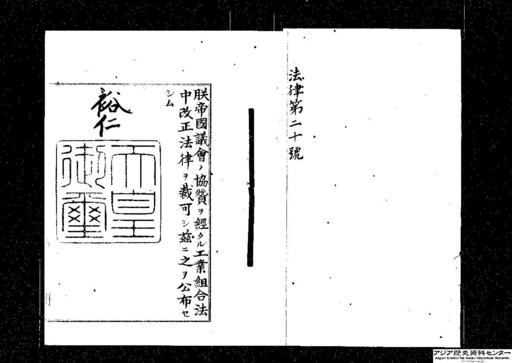 法律第二十號
朕帝國議會ノ協贊ヲ經タル工業組合法
中改正法律ヲ裁可シ茲ニ之ヲ公布セ
シム
裕仁
天皇
御璽
アジア歴史資料センター
Japan Center for Asian Historical Records